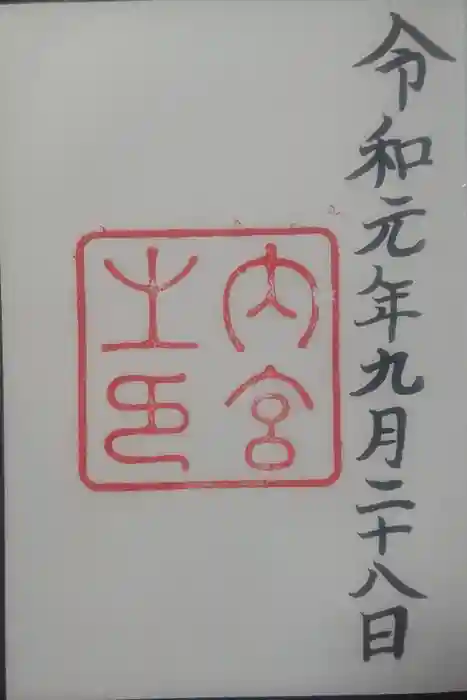 令和元年九月二十八日
内宮
之印